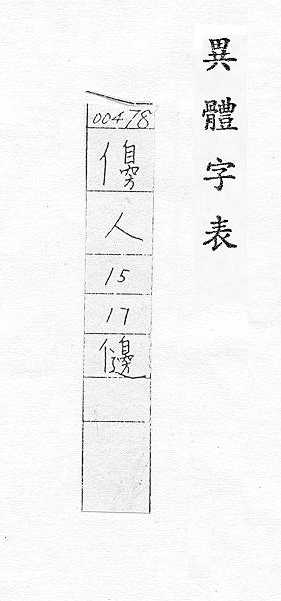 異體字表
00478
人
15
17